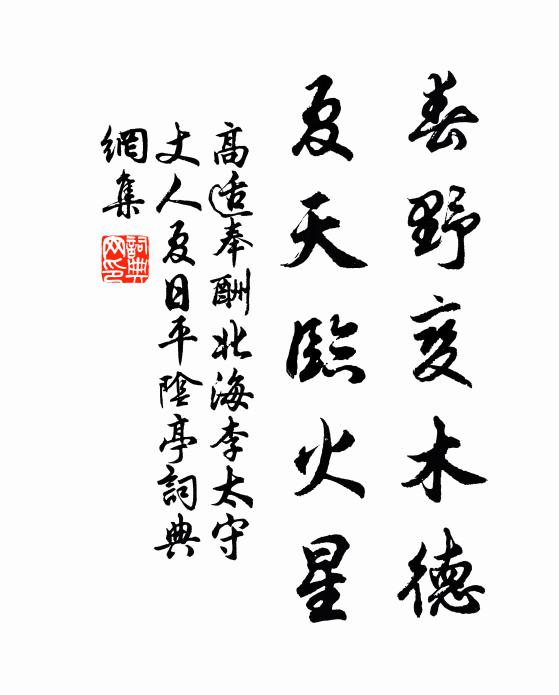 春野變木德
夏天臨火星
高適奉酬北海李太守
丈人夏日平陰亭詞典
網集
詞典網印